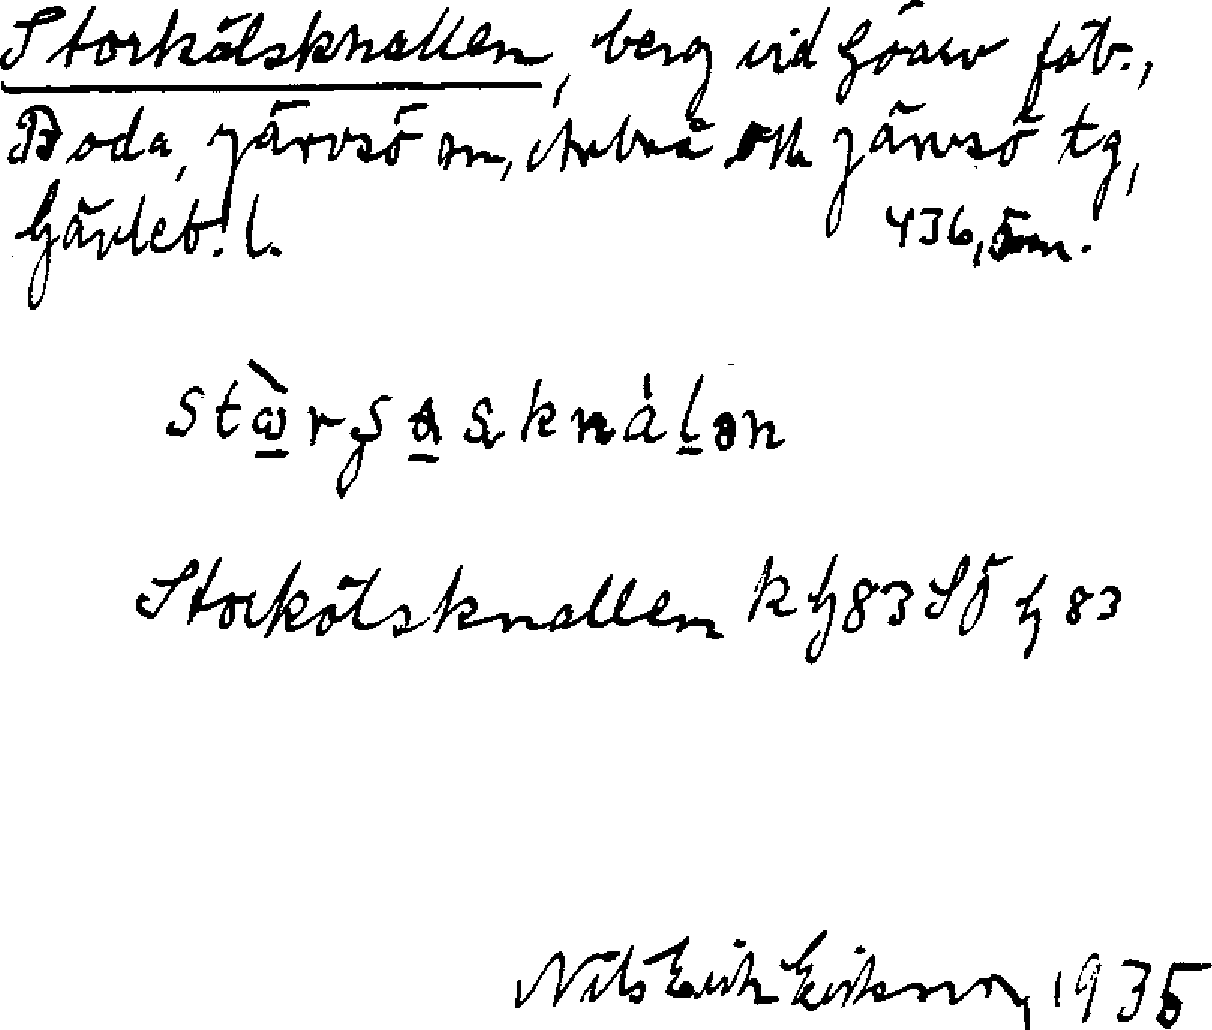 Storkölsknallen, berg vid Göaw fäb.,
Boda, Järvsö sn, Arbrå o Järvsö tg,
Gävleb. l. 436,5 m.
Storkölsknallen k G 83 SÖ G 83
Nils Erik Eriksson, 1935